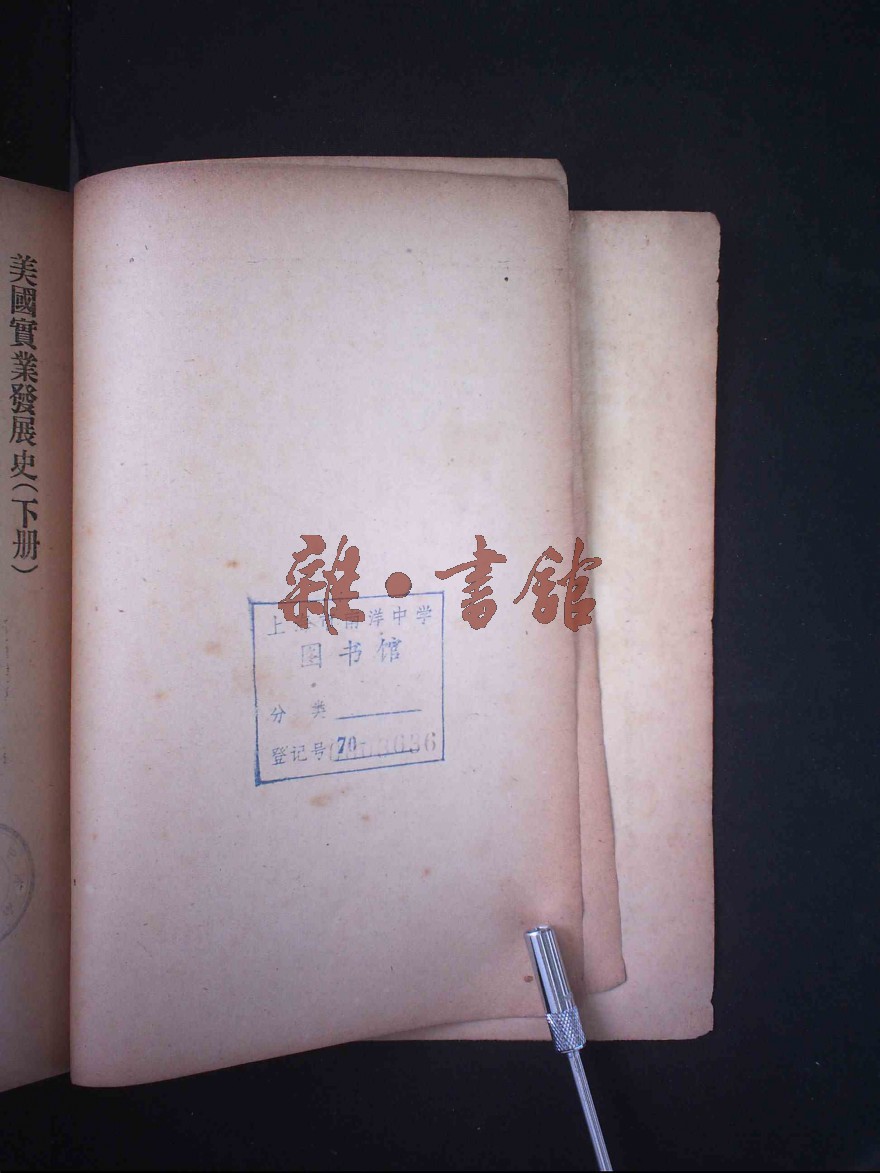 美國實業發展史(下册)
雜·書館
上海市南洋中学
图书馆
分类
登记号 70-3636